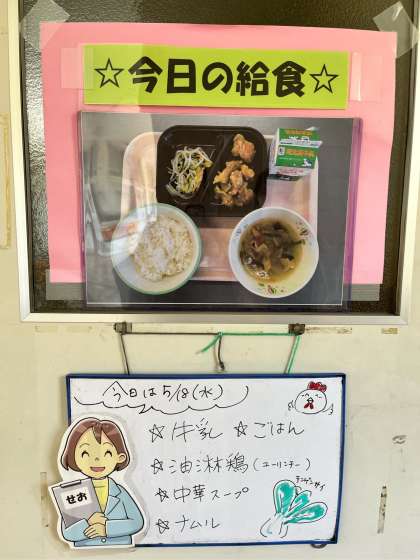 ☆今日の給食☆
今日は5/8(水)
☆牛乳 ☆ごはん
☆油淋鶏(ユーリンチー)
☆中華スープ
☆ナムル
チンゲンサイ
せお